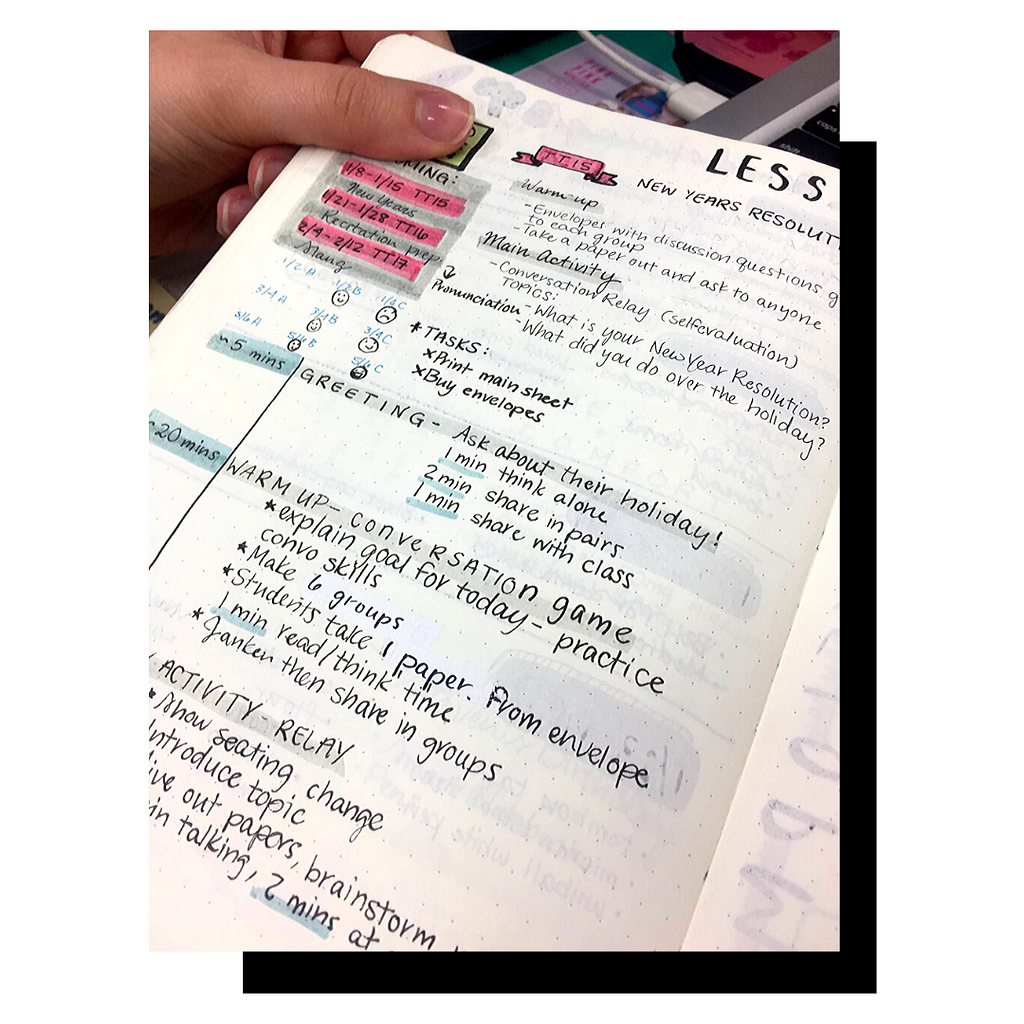 LESS
TT15
NEW YEARS RESOLUT
OMING:
1/8-1/15 TT15
New Years
1/21-1/28 TT16
Recreation prep
2/4-2/12 TT17
Slang
1/2 A 1/2 B 1/2 C
3/4 A 3/4 B 3/4 C
5/6 A 5/6 B 5/6 C
Warm-up
-Envelopes with discussion questions g
to each group
-Take a paper out and ask to anyone
Main Activity
-Conversation Relay (selfevaluation)
TOPICS:
-What is your NewYear Resolution?
-What did you do over the holiday?
Pronunciation
*TASKS:
xPrint main sheet
xBuy envelopes
~5 mins
GREETING - Ask about their holiday!
1 min think alone
2min share in pairs
1 min share with class
~20mins
WARM UP- CONVERSATION game
*explain goal for today - practice
convo skills
*Make 6 groups
*Students take 1 paper. From envelope
1 min read/think time
*Janken then share in groups
ACTIVITY- RELAY
*Show seating change
introduce topic
ive out papers, brainstorm
in talking, 2 mins at
caps
shift